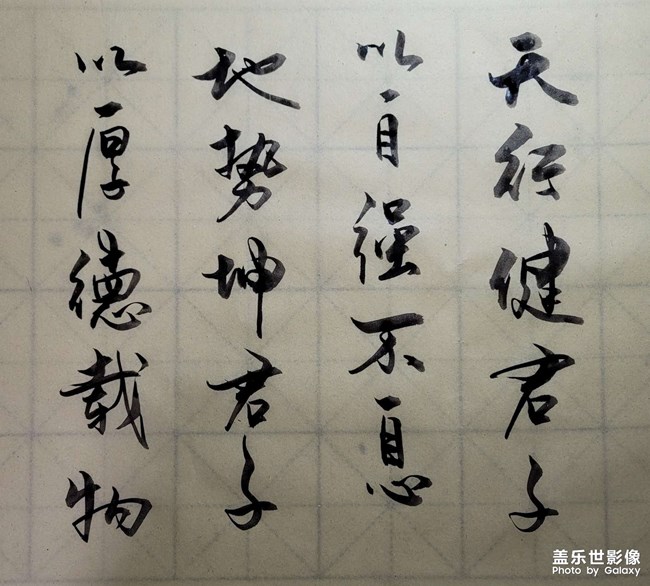 天行健君子
以自强不息
地势坤君子
以厚德载物
盖乐世影像
Photo by Galaxy